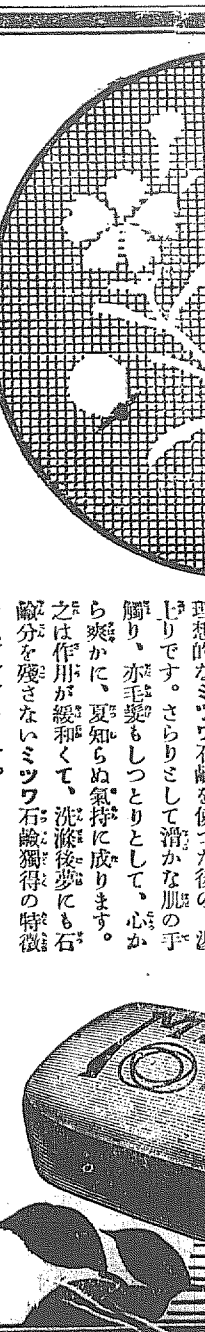 理想的なミツワ石鹼を使つた後の
上りです。さらりとして滑かな肌の手
觸り、亦毛髮もしつとりとして、心か
ら爽かに、夏知らぬ氣持に成ります。
之は作用が緩和くて、洗滌後夢にも石
鹼分を殘さないミツワ石鹼獨得の特徵